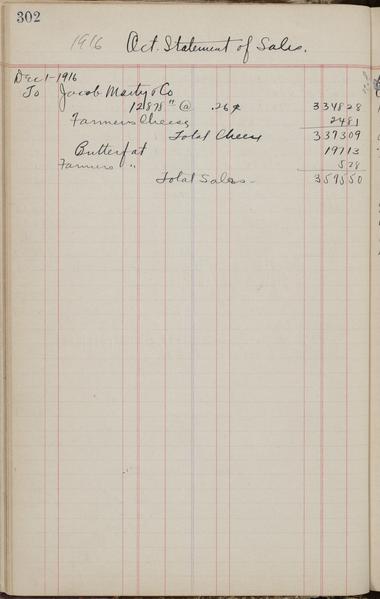 302
1916 Oct. Statement of Sales.
Dec 1-1916
To Jacob Marty & Co
12878 " @ .26 ¢ 334828
Farmers Cheese 2481
Total Cheese 337309
Butterfat 19713
Farmers " 528
Total Sales - 357550